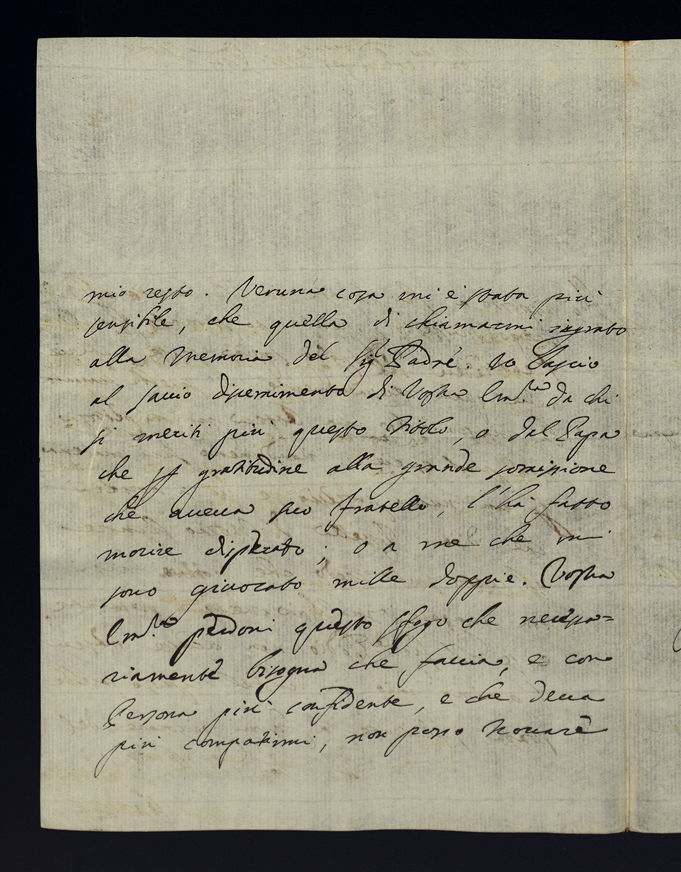 mio resto. Veruna cosa mi è stata più
sensibile, che quella di chiamarmi ingrato
alla memoria del Sig.r Padre. Io lascio
al savio discernimento di Vostra Em.za da chi
si meriti più questo titolo, o dal Papa
che per gratitudine alla grande somissione
che aveva suo fratello, l'hà fatto
morire disperato; o a me che mi
sono giuocato mille doppie. Vostra
Em.za perdoni questo sfogo che necessa=
riamente bisogna che faccia, e con
Persona più confidente, e che deva
più compatirmi, non posso trovare